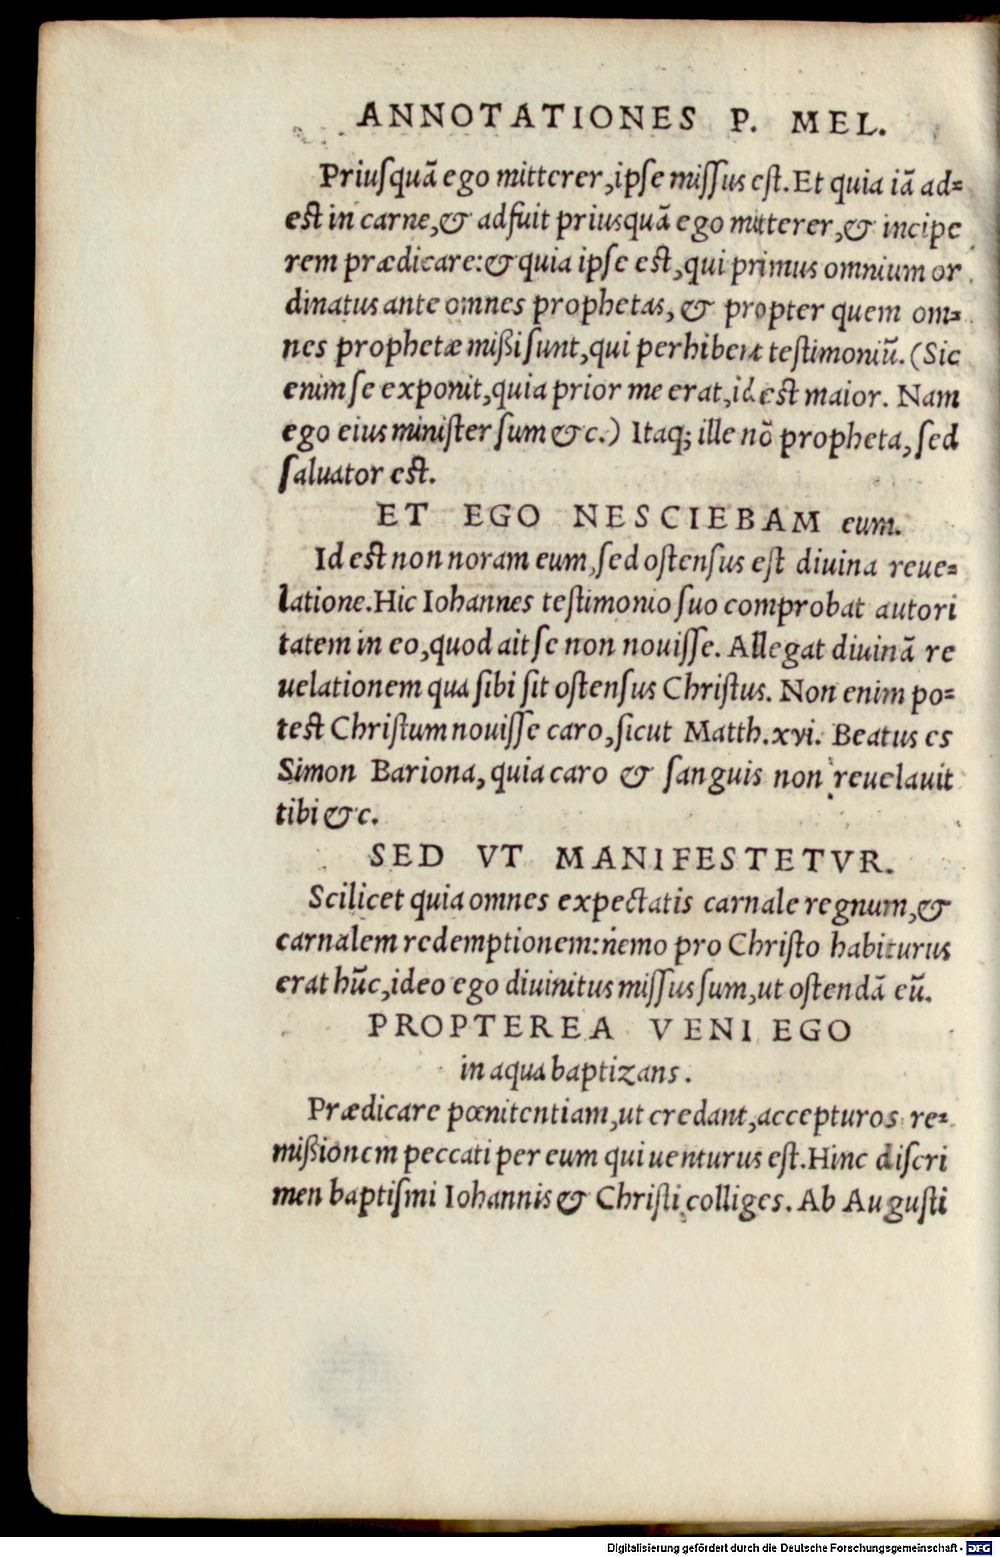 ANNOTATIONES P. MEL.
Priuſquã ego mitterer, ipſe miſſus eſt. Et quia iã ad=
eſt in carne, & adfuit priusquã ego mitterer, & incipe
rem prædicare: & quia ipſe eſt, qui primus omnium or
dinatus ante omnes prophetas, & propter quem om=
nes prophetæ mißi ſunt, qui perhibent teſtimoniũ. (Sic
enim ſe exponit, quia prior me erat, id eſt maior. Nam
ego eius miniſter ſum &c.) Itaq; ille nõ propheta, ſed
ſaluator eſt.
ET EGO NESCIEBAM eum.
Id eſt non noram eum, ſed oſtenſus eſt diuina reue=
latione. Hic Iohannes teſtimonio ſuo comprobat autori
tatem in eo, quod ait ſe non nouiſſe. Allegat diuinã re
uelationem qua ſibi ſit oſtenſus Chriſtus. Non enim po=
teſt Chriſtum nouiſſe caro, ſicut Matth. xvi. Beatus es
Simon Bariona, quia caro & ſanguis non reuelauit
tibi &c.
SED VT MANIFESTETVR.
Scilicet quia omnes expectatis carnale regnum, &
carnalem redemptionem: nemo pro Chriſto habiturus
erat hũc, ideo ego diuinitus miſſus ſum, ut oſtendã eũ.
PROPTEREA VENI EGO
in aqua baptizans.
Prædicare pœnitentiam, ut credant, accepturos re=
mißionem peccati per eum qui uenturus eſt. Hinc diſcri
men baptiſmi Iohannis & Chriſti colliges. Ab Auguſti
Digitalisierung gefördert durch die Deutsche Forschungsgemeinschaft - DFG